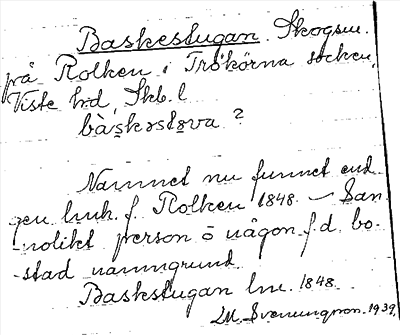 Baskestugan. Skogsm.
på Rolken i Trökörna socken,
Viste hrd, Skb. l
bàskəstəva ?
Namnet nu funnet end.
gen. hmk. f. Rolken 1848. – San-
nolikt person ō någon f.d. bo-
-stad namngrund.
Baskstugan hm. 1848.
LM. Svenungson. 1939.